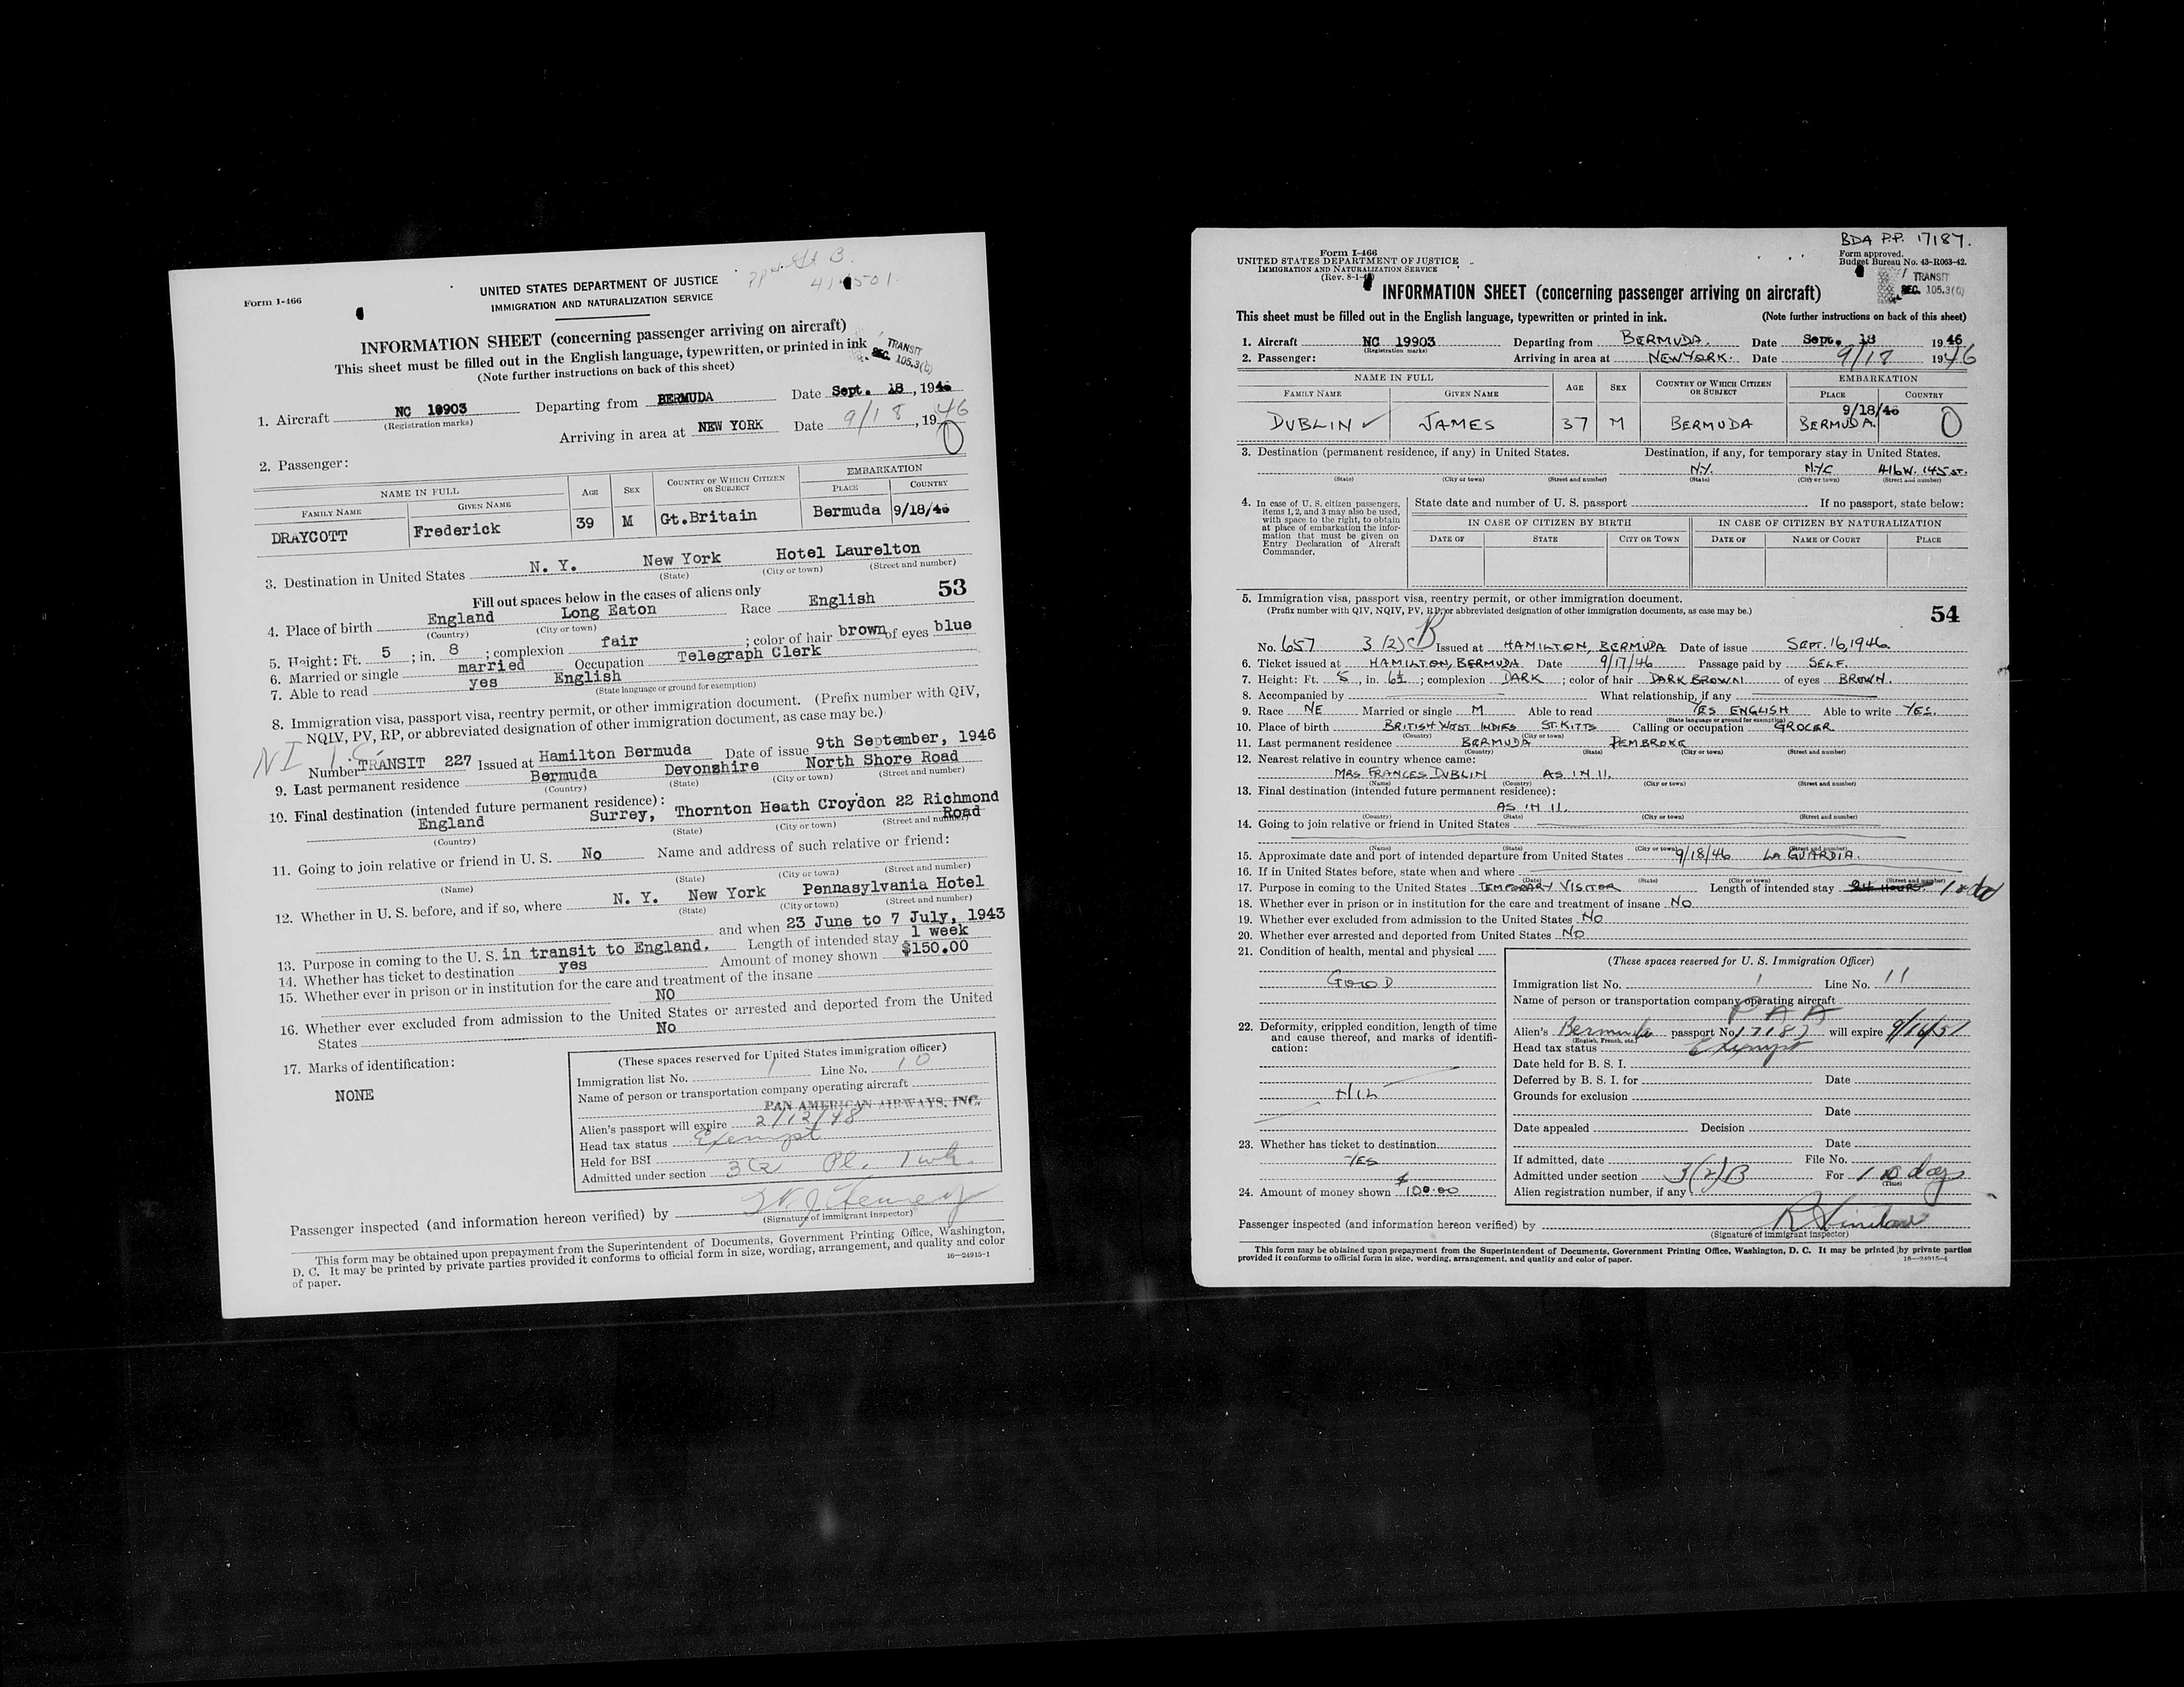 Form I-466
UNITED STATES DEPARTMENT OF JUSTICE
IMMIGRATION AND NATURALIZATION SERVICE
INFORMATION SHEET (concerning passenger arriving on aircraft)
This sheet must be filled out in the English language, typewritten, or printed in ink
(Note further instructions on back of this sheet)
TRANSIT
SEC. 105.3(b)
1. Aircraft NC 19903 Departing from BERMUDA Date Sept. 18, 1946
(Registration marks)
Arriving in area at NEW YORK Date 9/18, 1946
2. Passenger:
NAME IN FULL AGE SEX COUNTRY OF WHICH CITIZEN OR SUBJECT EMBARKATION
FAMILY NAME GIVEN NAME PLACE COUNTRY
DRAYCOTT Frederick 39 M Gt.Britain Bermuda 9/18/46
3. Destination in United States N. Y. New York Hotel Laurelton
(State) (City or town) (Street and number)
Fill out spaces below in the cases of aliens only 53
4. Place of birth England Long Eaton Race English
(Country) (City or town)
5. Height: Ft. 5; in. 8; complexion fair; color of hair brown of eyes blue
6. Married or single married Occupation Telegraph Clerk
7. Able to read yes English
(State language or ground for exemption)
8. Immigration visa, passport visa, reentry permit, or other immigration document. (Prefix number with QIV,
NQIV, PV, RP, or abbreviated designation of other immigration document, as case may be.)
Number TRANSIT 227 Issued at Hamilton Bermuda Date of issue 9th September, 1946
9. Last permanent residence Bermuda Devonshire North Shore Road
(Country) (State) (City or town) (Street and number)
10. Final destination (intended future permanent residence):
England Surrey, Thornton Heath Croydon 22 Richmond Road
(Country) (State) (City or town) (Street and number)
11. Going to join relative or friend in U. S. No Name and address of such relative or friend:
(Name) (State) (City or town) (Street and number)
12. Whether in U. S. before, and if so, where N. Y. New York Pennasylvania Hotel
(State) (City or town) (Street and number)
and when 23 June to 7 July, 1943
13. Purpose in coming to the U. S. in transit to England. Length of intended stay 1 week
14. Whether has ticket to destination yes Amount of money shown $150.00
15. Whether ever in prison or in institution for the care and treatment of the insane
NO
16. Whether ever excluded from admission to the United States or arrested and deported from the United
States No
17. Marks of identification:
NONE
(These spaces reserved for United States immigration officer)
Immigration list No. 1 Line No. 10
Name of person or transportation company operating aircraft
PAN AMERICAN AIRWAYS, INC.
Alien's passport will expire 2/12/48
Head tax status Exempt
Held for BSI
Admitted under section
Passenger inspected (and information hereon verified) by
(Signature of immigrant inspector)
This form may be obtained upon prepayment from the Superintendent of Documents, Government Printing Office, Washington,
D. C. It may be printed by private parties provided it conforms to official form in size, wording, arrangement, and quality and color
of paper.
16—24915-1
BDA P.P. 17187.
Form I-466
UNITED STATES DEPARTMENT OF JUSTICE
IMMIGRATION AND NATURALIZATION SERVICE
Form approved.
Budget Bureau No. 43-R063-42.
TRANSIT
SEC. 105.3(c)
INFORMATION SHEET (concerning passenger arriving on aircraft)
This sheet must be filled out in the English language, typewritten or printed in ink. (Note further instructions on back of this sheet)
1. Aircraft NC 19903 Departing from BERMUDA. Date Sept. 18 1946
(Registration marks)
2. Passenger: Arriving in area at NEW YORK. Date 9/18 1946
NAME IN FULL AGE SEX COUNTRY OF WHICH CITIZEN OR SUBJECT EMBARKATION
FAMILY NAME GIVEN NAME PLACE COUNTRY
9/18/46
DUBLIN JAMES 37 M BERMUDA BERMUDA.
3. Destination (permanent residence, if any) in United States. Destination, if any, for temporary stay in United States.
N.Y. NYC 416 W. 145 ST.
(State) (City or town) (Street and number) (State) (City or town) (Street and number)
4. In case of U. S. citizen passengers, items 1, 2, and 3 may also be used, with space to the right, to obtain at place of embarkation the information that must be given on Entry Declaration of Aircraft Commander.
State date and number of U. S. passport If no passport, state below:
IN CASE OF CITIZEN BY BIRTH IN CASE OF CITIZEN BY NATURALIZATION
DATE OF STATE CITY OR TOWN DATE OF NAME OF COURT PLACE
5. Immigration visa, passport visa, reentry permit, or other immigration document.
(Prefix number with QIV, NQIV, PV, RP, or abbreviated designation of other immigration documents, as case may be.) 54
No. 657 3 (2) B Issued at HAMILTON, BERMUDA Date of issue SEPT. 16, 1946.
6. Ticket issued at HAMILTON, BERMUDA Date 9/17/46 Passage paid by SELF.
7. Height: Ft. 5, in. 6½; complexion DARK; color of hair DARK BROWN of eyes BROWN.
8. Accompanied by What relationship, if any
9. Race NE Married or single M Able to read YES ENGLISH Able to write YES.
(State language or ground for exemption)
10. Place of birth BRITISH WEST INDIES ST. KITTS Calling or occupation GROCER
(Country) (City or town)
11. Last permanent residence BERMUDA PEMBROKE
(Country) (State) (City or town) (Street and number)
12. Nearest relative in country whence came:
MRS FRANCES DUBLIN AS IN 11.
(Name) (Country) (City or town) (Street and number)
13. Final destination (intended future permanent residence):
AS IN 11.
(Country) (State) (City or town) (Street and number)
14. Going to join relative or friend in United States
(Name) (State) (City or town) (Street and number)
15. Approximate date and port of intended departure from United States 9/18/46 LA GUARDIA.
16. If in United States before, state when and where
(Date) (State) (City or town) (Street and number)
17. Purpose in coming to the United States TEMPORARY VISITOR Length of intended stay 24 HOURS
18. Whether ever in prison or in institution for the care and treatment of insane NO
19. Whether ever excluded from admission to the United States NO
20. Whether ever arrested and deported from United States NO
21. Condition of health, mental and physical
GOOD
22. Deformity, crippled condition, length of time
and cause thereof, and marks of identifi-
cation:
NIL
23. Whether has ticket to destination
YES
24. Amount of money shown $100.00
(These spaces reserved for U. S. Immigration Officer)
Immigration list No. 1 Line No. 11
Name of person or transportation company operating aircraft
PAA
Alien's Bermuda passport No. 17187 will expire 9/16/51
(English, French, etc.)
Head tax status Exempt
Date held for B. S. I.
Deferred by B. S. I. for Date
Grounds for exclusion
Date
Date appealed Decision
Date
If admitted, date File No.
Admitted under section 3(2)B For 10 days
(Time)
Alien registration number, if any
Passenger inspected (and information hereon verified) by
(Signature of immigrant inspector)
This form may be obtained upon prepayment from the Superintendent of Documents, Government Printing Office, Washington, D. C. It may be printed by private parties
provided it conforms to official form in size, wording, arrangement, and quality and color of paper.
16—24915-4